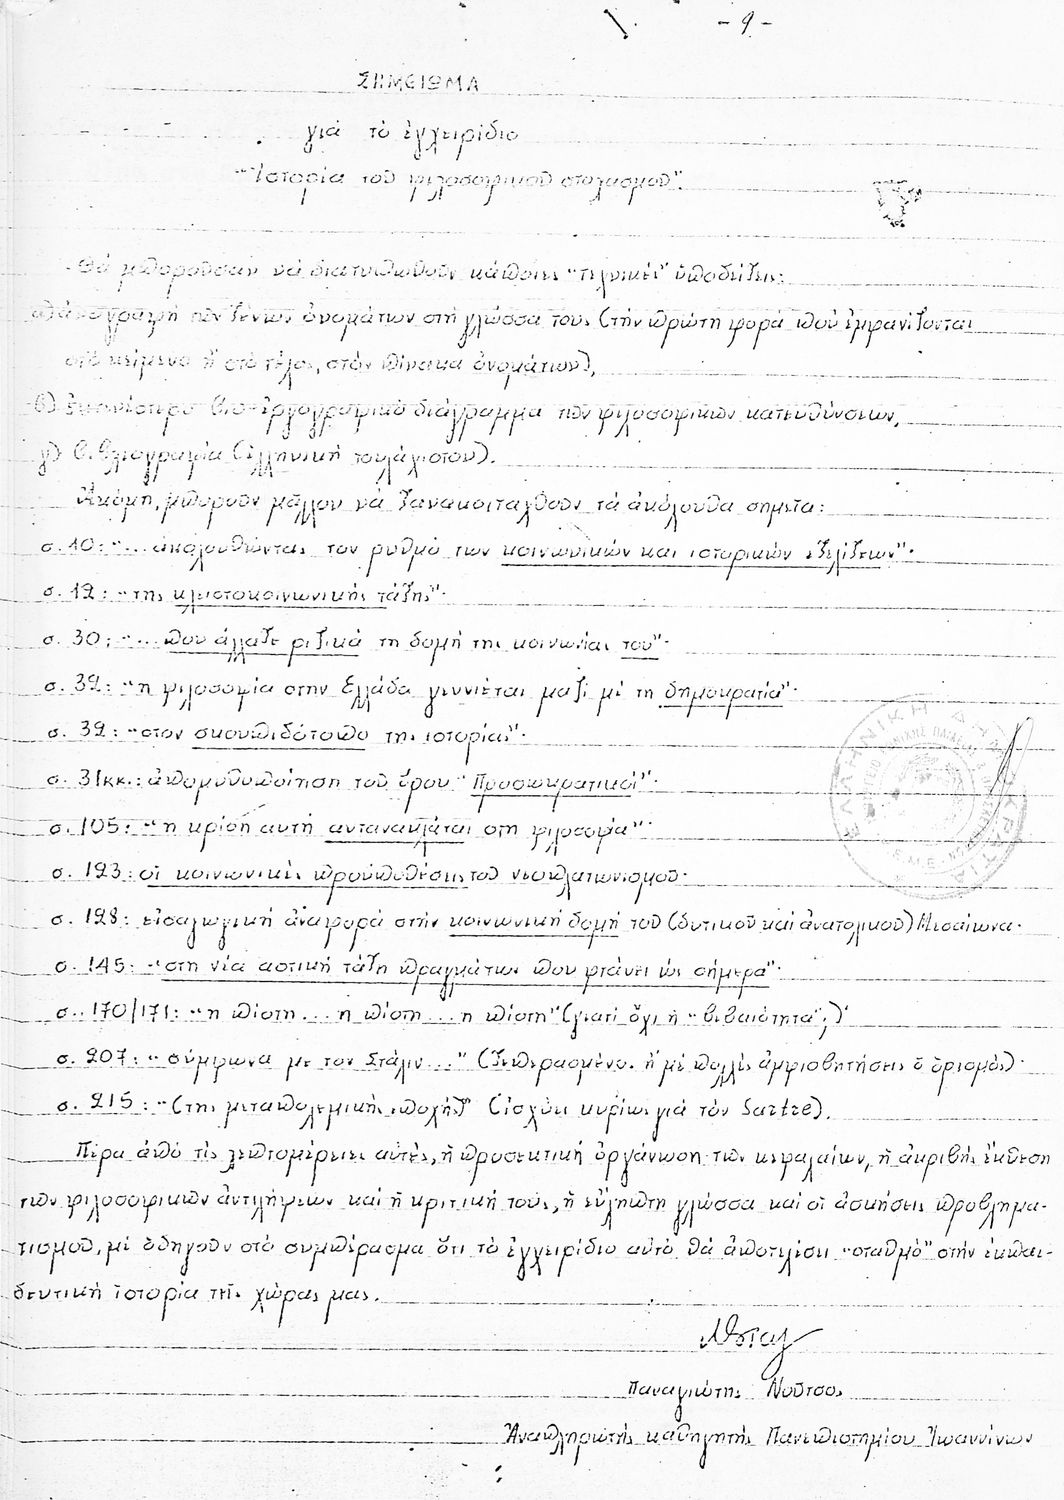 - 9 -
ΣΗΜΕΙΩΜΑ
γιά τὸ ἐγχειρίδιο
"Ἱστορία τοῦ φιλοσοφικοῦ στοχασμοῦ".
Θά μποροῦσαν νά διατυπωθοῦν κάποιες "τεχνικές" ὑποδείξεις:
α) ἀναγραφή τῶν ξένων ὀνομάτων στή γλώσσα τους (τήν πρώτη φορά πού ἐμφανίζονται
στό κείμενο ἤ στό τέλος, στόν πίνακα ὀνομάτων),
β) βιο-ἐργογραφικό διάγραμμα τῶν φιλοσοφικῶν κατευθύνσεων,
γ) βιβλιογραφία (ἑλληνική τουλάχιστον).
Ἀκόμη, μποροῦν μᾶλλον νά ξανακοιταχθοῦν τά ἀκόλουθα σημεῖα:
σ. 10: "... ακολουθώντας τον ρυθμό των κοινωνικών και ιστορικών εξελίξεων"·
σ. 12: "της κλειστοκοινωνικής τάξης"·
σ. 30: "... που άλλαξε ριζικά τη δομή της κοινωνίας του"·
σ. 32: "η φιλοσοφία στην Ελλάδα γεννιέται μαζί μέ τη δημοκρατία"·
σ. 32: "στον σκουπιδότοπο της ιστορίας"·
σ. 31κκ.: ἀπομυθοποίηση τοῦ ὅρου "Προσωκρατικοί"·
σ. 105: "η κρίση αυτή αντανακλάται στη φιλοσοφία"·
σ. 123: οἱ κοινωνικές προϋποθέσεις τοῦ νεοπλατωνισμοῦ·
σ. 128: εἰσαγωγική ἀναφορά στήν κοινωνική δομή τοῦ (δυτικοῦ καί ἀνατολικοῦ) Μεσαίωνα·
σ. 145: "στη νέα αστική τάξη πραγμάτων που φτάνει ώς σήμερα"·
σ. 170/171: "η πίστη... η πίστη... η πίστη" (γιατί ὄχι ἡ "βεβαιότητα";)·
σ. 207: "σύμφωνα με τον Στάλιν..." (ξεπερασμένος ἤ μέ πολλές ἀμφισβητήσεις ὁ ὁρισμός)·
σ. 215: "(της μεταπολεμικής εποχής)" (ἰσχύει κυρίως γιά τόν Sartre).
Πέρα ἀπό τίς λεπτομέρειες αὐτές, ἡ προσεκτική ὀργάνωση τῶν κεφαλαίων, ἡ ἀκριβής ἔκθεση
τῶν φιλοσοφικῶν ἀντιλήψεων καί ἡ κριτική τους, ἡ εὔληπτη γλώσσα καί οἱ ἀσκήσεις προβλημα-
τισμοῦ, μέ ὁδηγοῦν στό συμπέρασμα ὅτι τό ἐγχειρίδιο αὐτό θά ἀποτελέσει "σταθμό" στήν ἐκπαι-
δευτική ἱστορία τῆς χώρας μας.
Παναγιώτης Νοῦτσος
Ἀναπληρωτής καθηγητής Πανεπιστημίου Ἰωαννίνων
ΕΛΛΗΝΙΚΗ ΔΗΜΟΚΡΑΤΙΑ